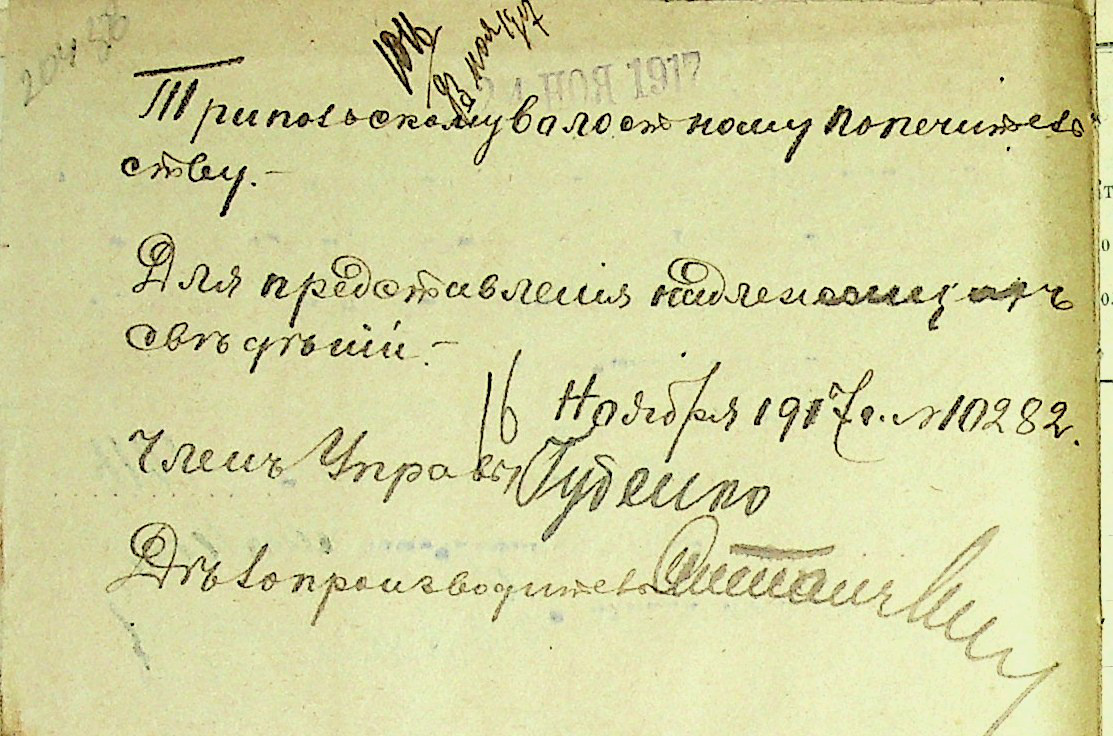 20456
1816
23 ноя 1917
24 НОЯ 1917
Трипольскому волостному попечитель
ству.-
Для представления надлежащихъ
свѣдѣній.-
16 Ноября 1917 г. №10282.
Членъ Управы Гуденко
Дѣлопроизводитель